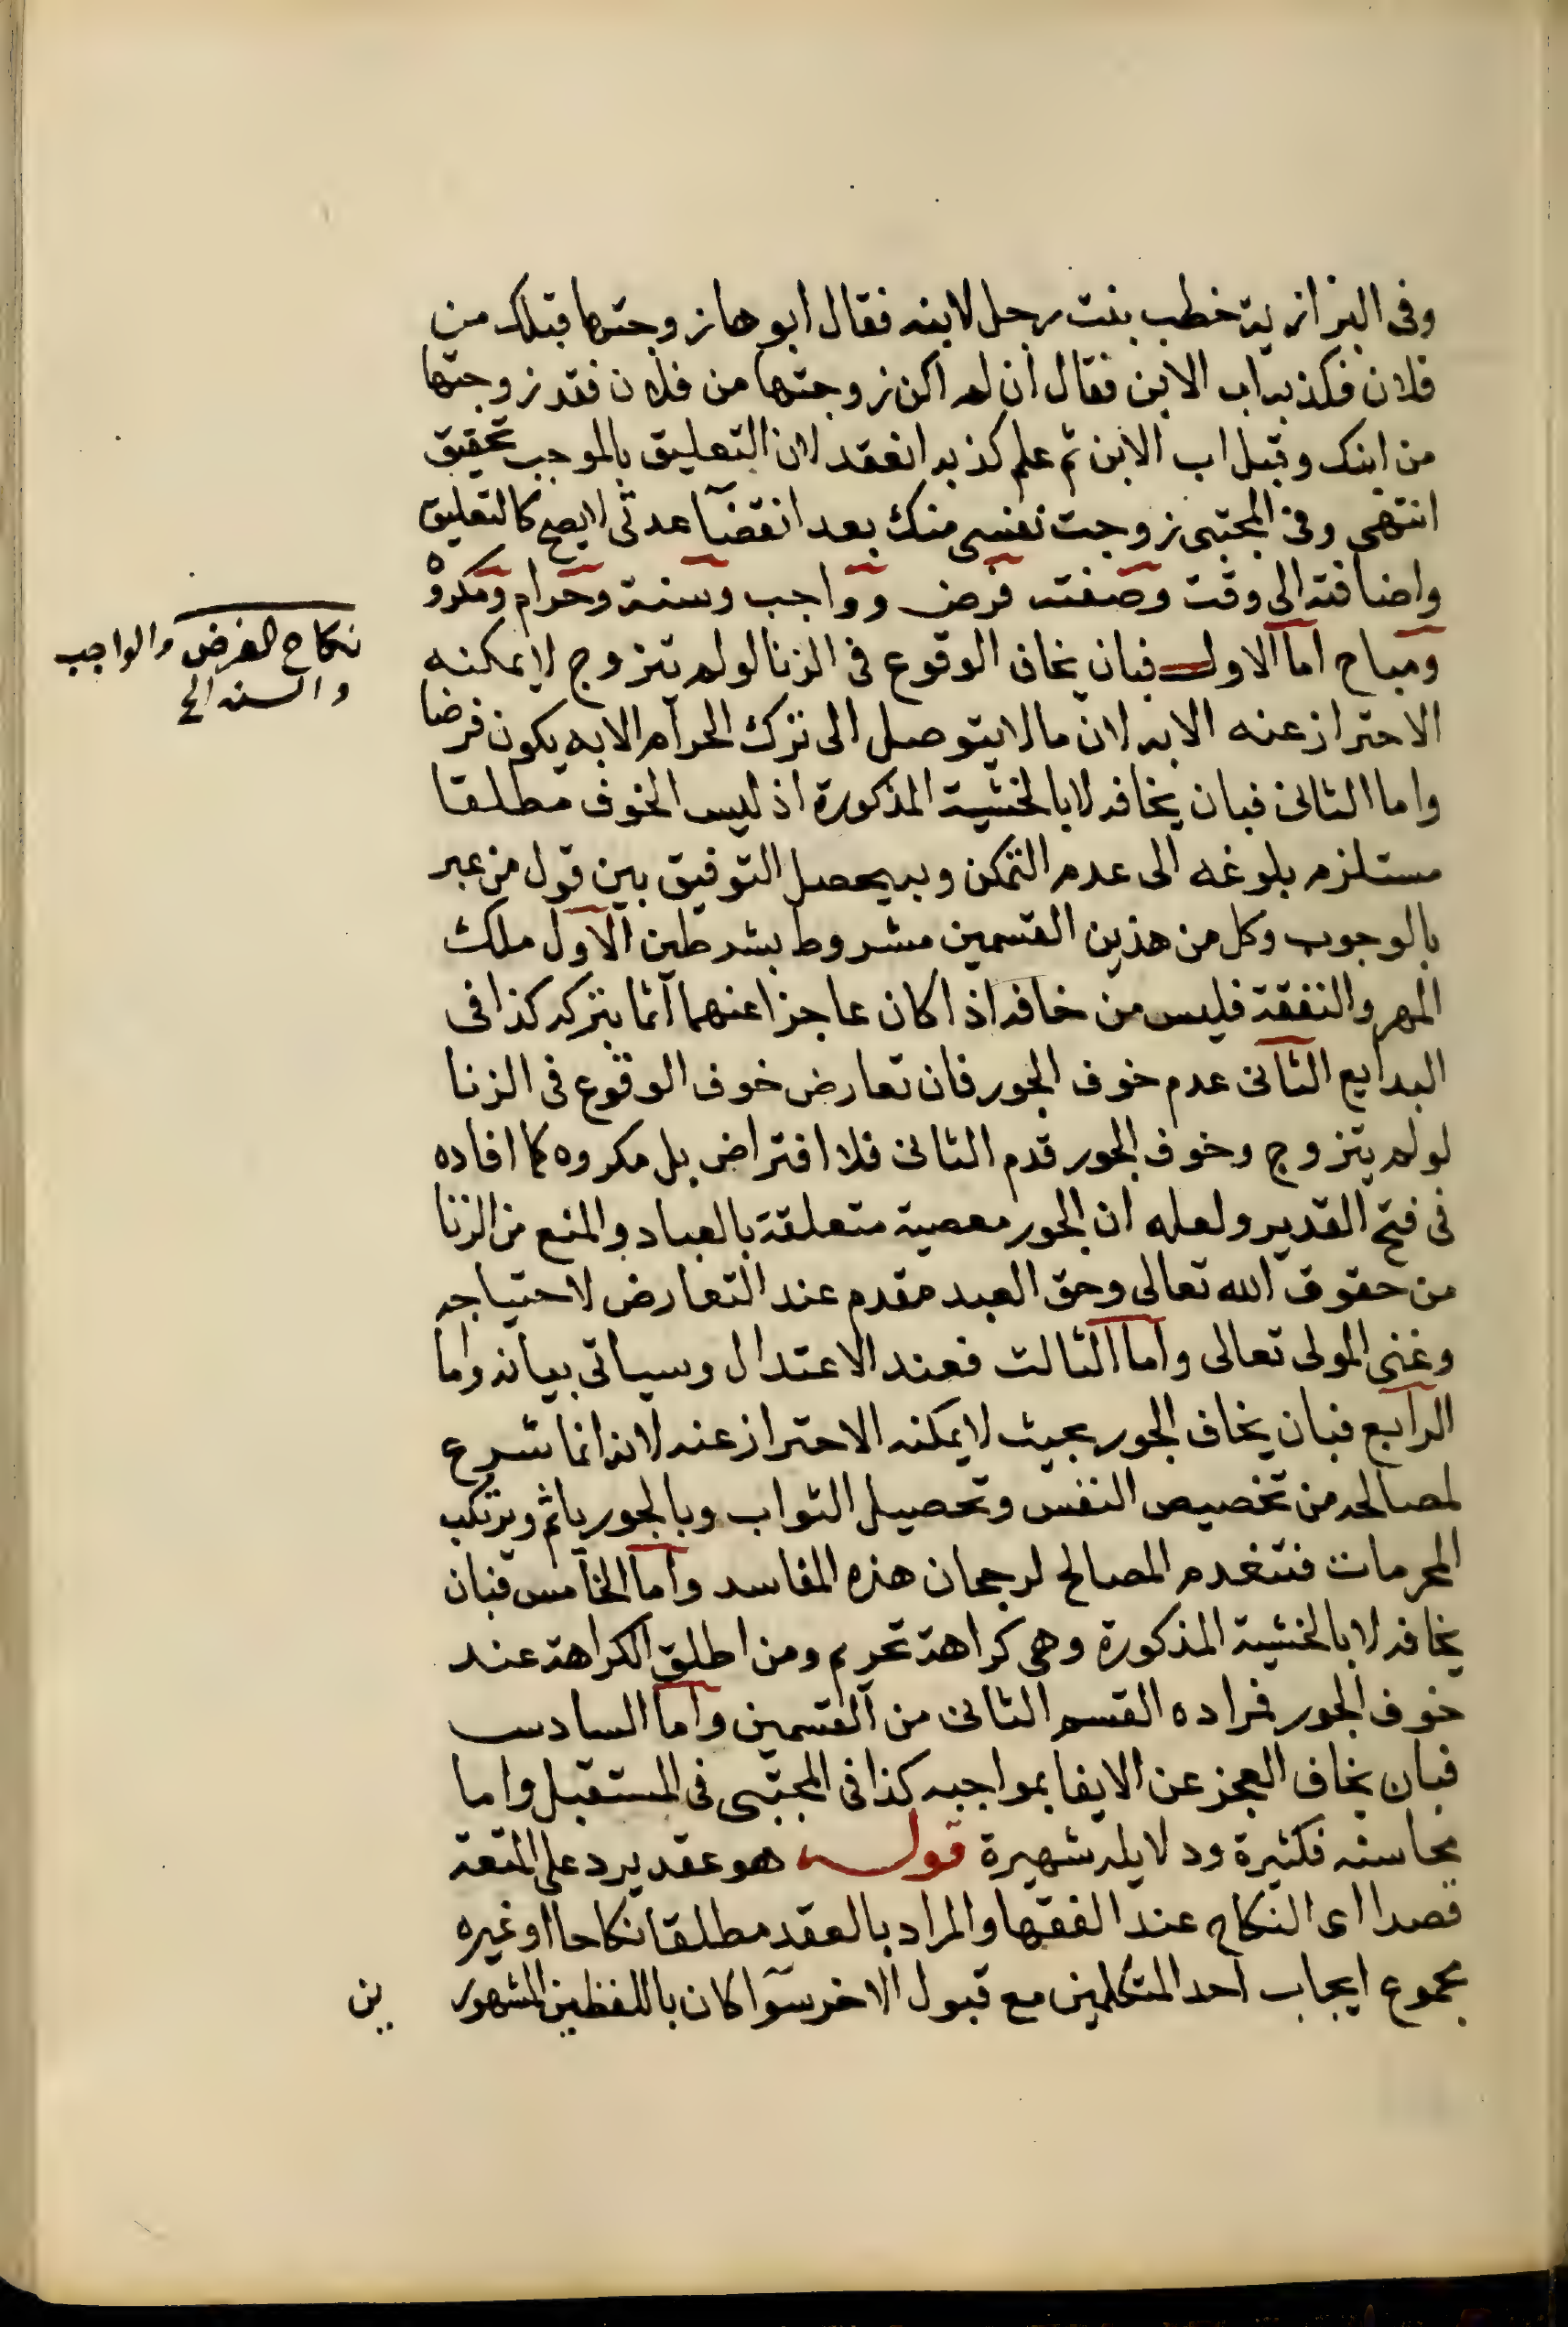 وفى البزازية خطب بنت رجل لابنه فقال ابوها زوجتها قبلك من
فلان فكذبه اب الابن فقال ان لم اكن زوجتها من فلان فقد زوجتها
من ابنك وقبل اب الابن ثم علم كذبه انعقد لان التعليق بالموجب تحقيق
انتهى وفى المجتبى زوجت نفسى منك بعد انقضآ عدتى لايصح كالتعليق
واضافته الى وقت وصفته فرض وواجب وسنة وحرام ومكروه
ومباح اما الاول فبان يخاف الوقوع فى الزنا لولم يتزوج لايمكنه
الاحتراز عنه الابه لان مالايتوصل الى ترك الحرام الابه يكون فرضا
واما الثانى فبان يخافه لابالخشية المذكورة اذ ليس الخوف مطلقا
مستلزم بلوغه الى عدم التمكن وبه يحصل التوفيق بين قول من عبر
بالوجوب وكل من هذين القسمين مشروط بشرطين الاول ملك
المهر والنفقة فليس من خافه اذا كان عاجزا عنهما آثما بتركه كذا فى
البدايع الثانى عدم خوف الجور فان تعارض خوف الوقوع فى الزنا
لولم يتزوج وخوف الجور قدم الثانى فلا افتراض بل مكروه كما افاده
فى فتح القدير ولعله ان الجور معصية متعلقة بالعباد والمنع من الزنا
من حقوق الله تعالى وحق العبد مقدم عند التعارض لاحتياجه
وغنى المولى تعالى واما الثالث فعند الاعتدال وسياتى بيانه واما
الرابع فبان يخاف الجور بحيث لايمكنه الاحتراز عنه لانه انما شرع
لمصالحه من تخصيص النفس وتحصيل الثواب وبالجور ياثم ويرتكب
المحرمات فتنعدم المصالح لرجحان هذه المفاسد واما الخامس فبان
يخافه لابالخشية المذكورة وهى كراهة تحريم ومن اطلق الكراهة عند
خوف الجور فمراده القسم الثانى من القسمين واما السادس
فبان يخاف العجز عن الايفا بمواجبه كذا فى المجتبى فى المستقبل واما
محاسنه فكثيرة ودلايله شهيرة قوله هو عقد يرد على المتعة
قصدا اى النكاح عند الفقها والمراد بالعقد مطلقا نكاحا اوغيره
مجموع ايجاب احد المتكلمين مع قبول الاخر سوآ كان باللفظين المشهور
ين
نكاح الفرض والواجب
والسنه الخ